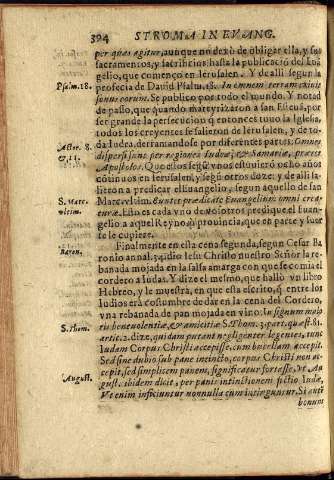 394 STROMA IN EVANG.
per quas agitur, aunque no dexò de obligar ella, y sus
sacramentos, y sacrificios hasta la publicaciõ del Euã
gelio, que començo en Ierusalen. Y de alli segun la
Psalm. 18.
profecia de Dauid Psalm. 18. In omnem terram exiuit
sonus eorum. Se publico por todo el mundo. Y notad
de passo, que quando martyrizaron a san Esteuã, por
ser grande la persecucion q̃ entonces tuuo la Iglesia,
todos los creyentes se salieron de Ierusalen, y de to-
Actor. 8.
& 11.
da Iudea, derramandose por diferentes partes. Omnes
dispersi sunt per regiones Iudææ, & Samariæ, præter
Apostolos. Que ellos segũ vnos estuuierõ ocho años
cõtinuos en Ierusalen, y segũ otros doze: y de alli sa-
lieron a predicar el Euangelio, segun aquello de san
S. Marc.
vltim.
Marc. vltim. Euntes prædicate Euangelium omni crea-
turæ. Esto es cada vno de vosotros predique el Euan-
gelio a aquel Reyno, ò prouincia, que en parte y suer
te le cupiere.
Finalmente en esta cena segunda, segun Cesar Ba
Baron.
ronio annal. 34. dio Iesu Christo nuestro Señor la re-
banada mojada en la salsa amarga con que se comia el
cordero a Iudas. Y dize el mesmo, que hallò vn libro
Hebreo, y le muestra, en que esta escrito, q̃ entre los
Iudios erà costumbre de dar en la cena del Cordero,
vna rebanada de pan mojada en vino. In signum maio
S. Thom.
ris beneuolentiæ, & amicitiæ S. Thom. 3. part. quæst. 81.
artic. 2. dize, quidam putant negligenter legentes, tunc
Iudam Corpus Christi accepisse, cum bucellam accepit.
Sed sine dubio sub pane intincto, corpus Christi non ac-
cepit, sed simplicem panem, significatur fortasse, vt Au
August.
gust. ibidem dicit, per panis intinctionem fictio Iudæ,
Vt enim inficiuntur nonnulla cum intinguntur. Si autē
bonum